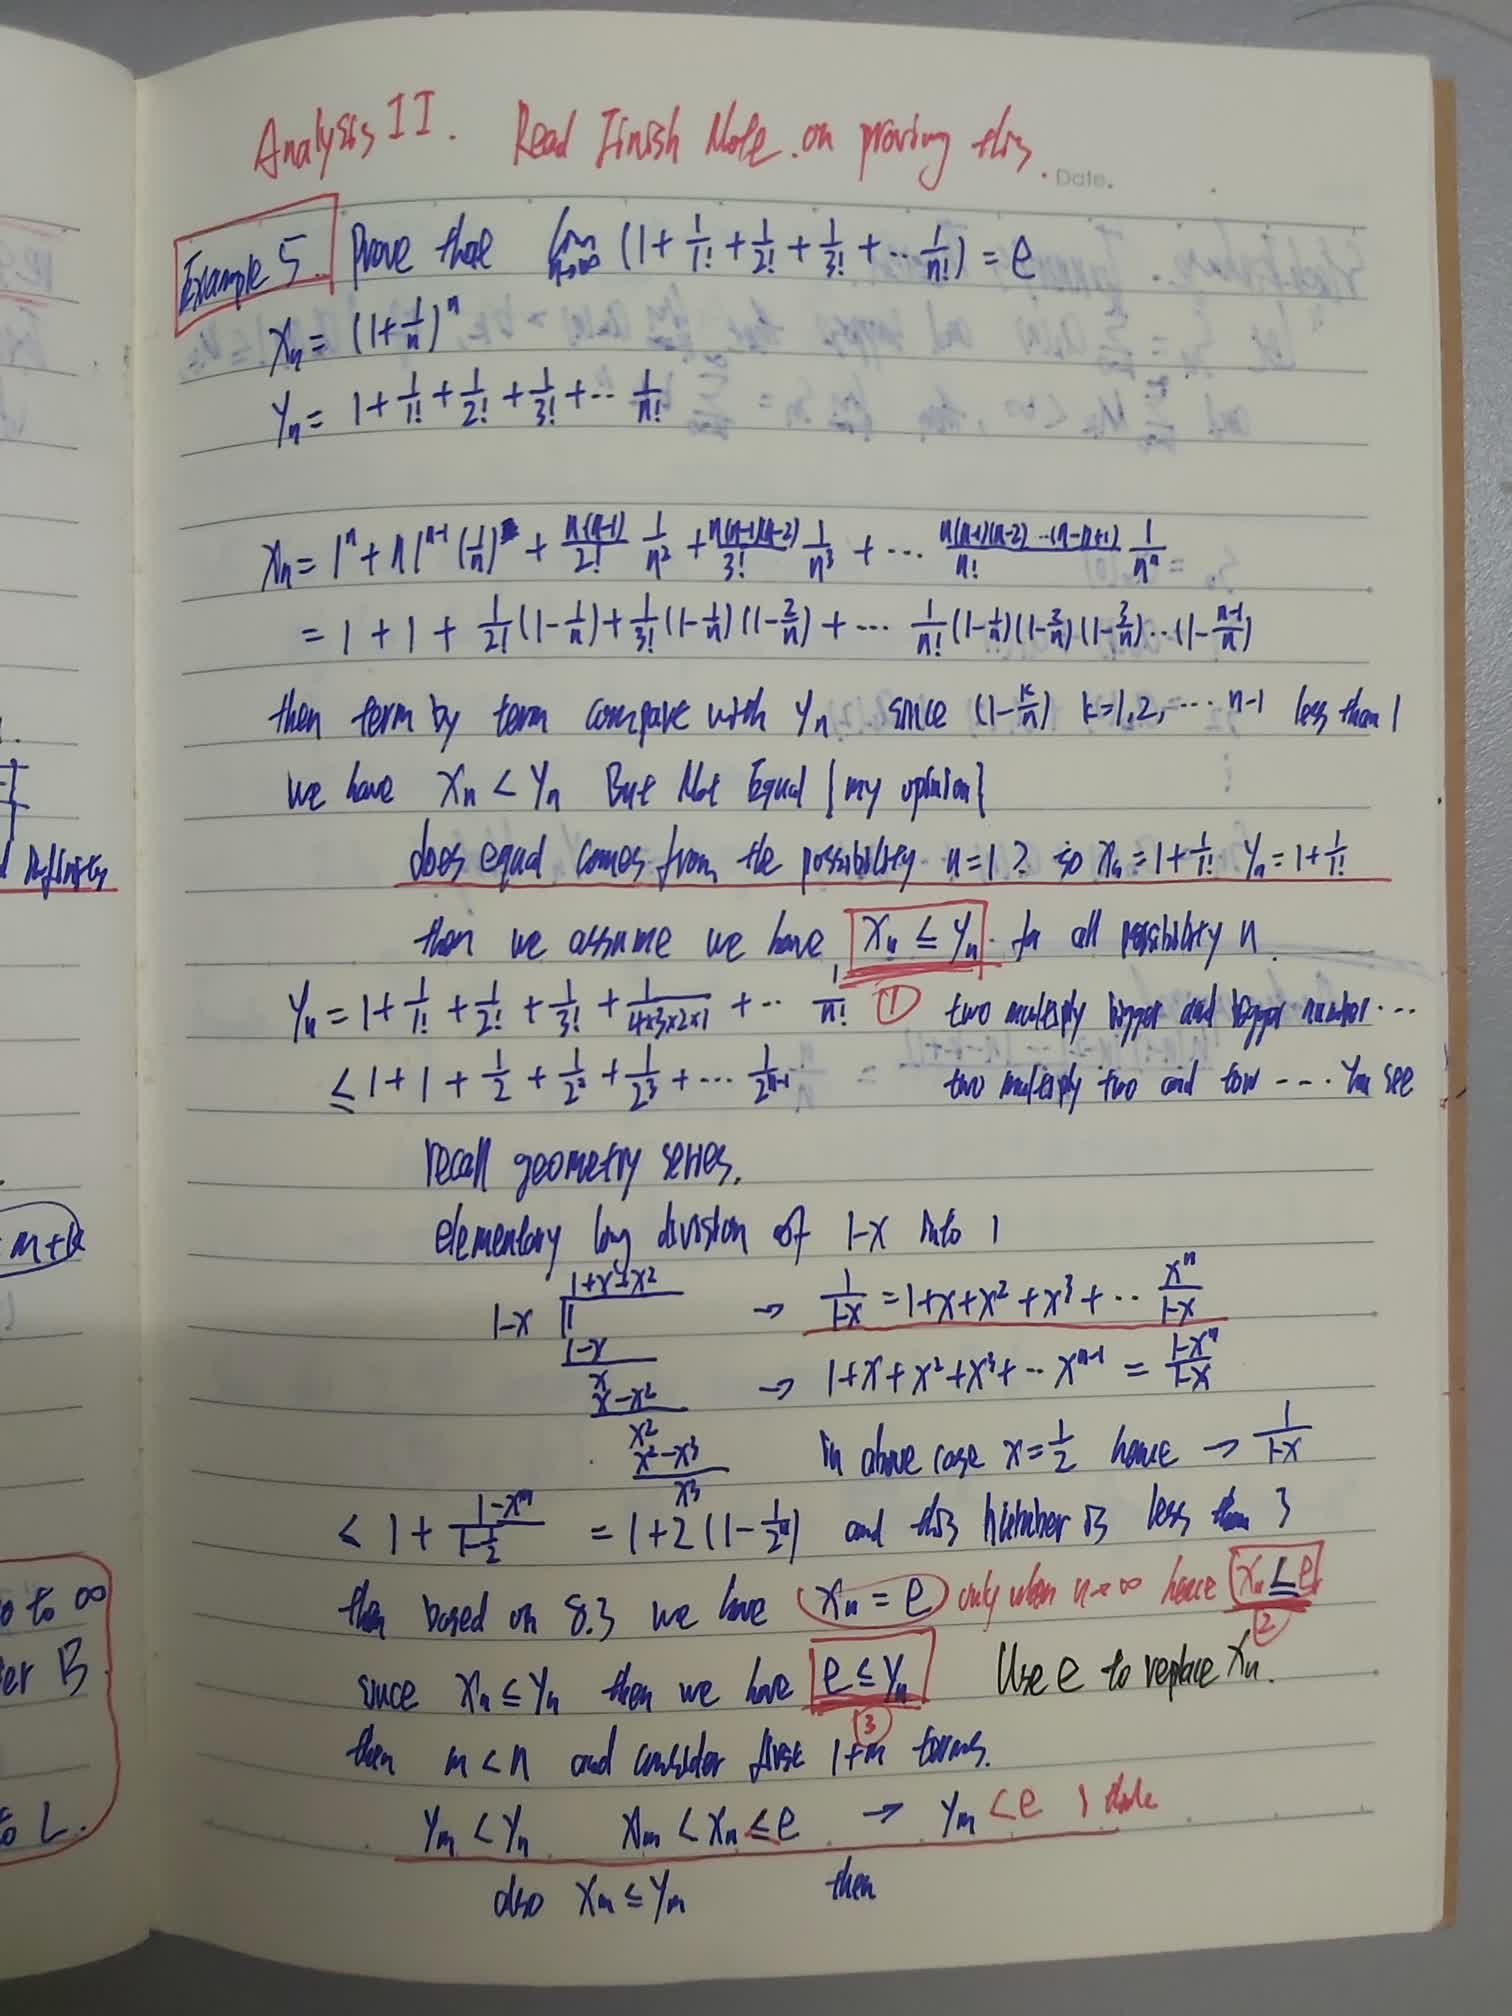 Analysis II. Read Finish Note. on proving this.
Date.
Example 5. Prove that lim n→∞ (1 + 1/1! + 1/2! + 1/3! + ... 1/n!) = e
Xn = (1 + 1/n)^n
Yn = 1 + 1/1! + 1/2! + 1/3! + ... 1/n!
Xn = 1^n + n 1^(n-1) (1/n) + n(n-1)/2! 1/n^2 + n(n-1)(n-2)/3! 1/n^3 + ... n(n-1)(n-2)...(n-n+1)/n! 1/n^n
= 1 + 1 + 1/2! (1 - 1/n) + 1/3! (1 - 1/n)(1 - 2/n) + ... 1/n! (1 - 1/n)(1 - 2/n)(1 - 3/n)...(1 - (n-1)/n)
then term by term compare with Yn since (1 - k/n) k=1,2,... n-1 less than 1
we have Xn < Yn But Not Equal {my opinion}
does equal comes from the possibility n=1? so Xn = 1 + 1/1! Yn = 1 + 1/1!
then we assume we have Xn ≤ Yn. for all possibility n.
Yn = 1 + 1/1! + 1/2! + 1/3! + 1/(4×3×2×1) + ... 1/n! ① two multiply bigger and bigger number...
≤ 1 + 1 + 1/2 + 1/2^2 + 1/2^3 + ... 1/2^(n-1) two multiply two and tow .... You see
recall geometry series.
elementary long division of 1-x into 1
1+x+x^2
1-x 1 → 1/(1-x) = 1+x+x^2+x^3+... x^n/(1-x)
1-x
x
x-x^2 → 1+x+x^2+x^3+... x^(n-1) = (1-x^n)/(1-x)
x^2
x^2-x^3 in above case x = 1/2 hence → 1/(1-x)
x^3
< 1 + (1-x^n)/(1-1/2) = 1+2(1 - 1/2^n) and this number is less than 3
then based on 8.3 we have Xn = e only when n→∞ hence Xn ≤ e ②
since Xn ≤ Yn then we have e ≤ Yn ③ Use e to replace Xn.
then m < n and consider first 1+m terms.
Ym < Yn Xm < Xn ≤ e → Ym < e
also Xm ≤ Ym then
m+k
to ∞
er B
to L.